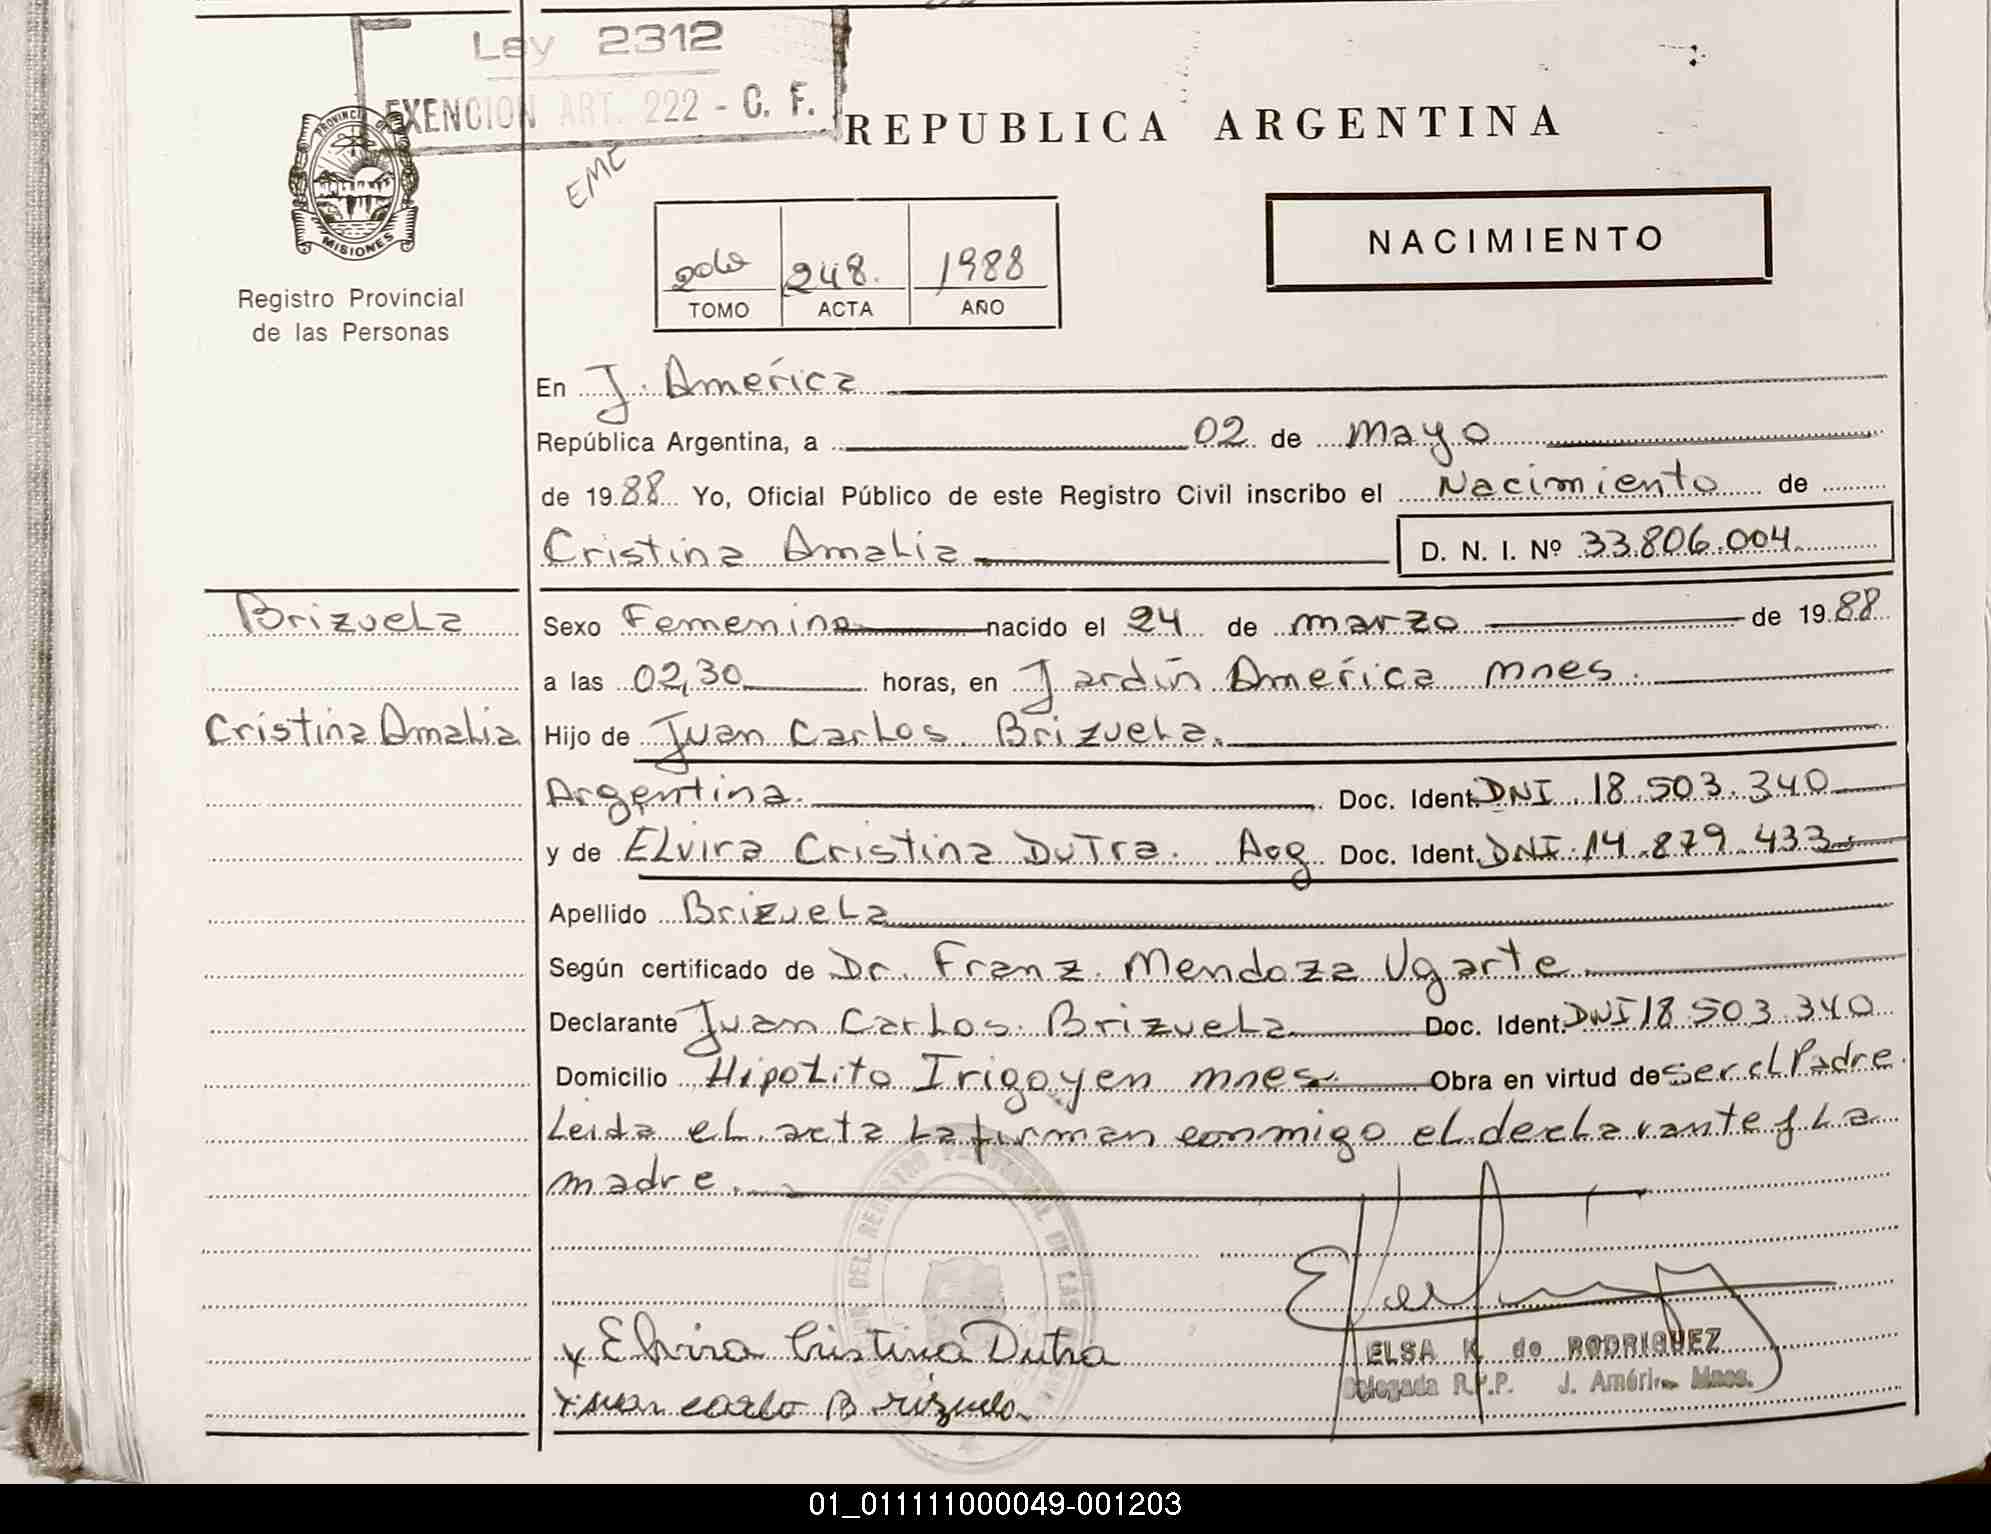 Ley 2312
EXENCION ART. 222 - C. F.
EME
REPUBLICA ARGENTINA
PROVINCIA DE
MISIONES
Registro Provincial
de las Personas
2do 248. 1988
TOMO ACTA AÑO
NACIMIENTO
En J. América
República Argentina, a 02 de mayo
de 1988 Yo, Oficial Público de este Registro Civil inscribo el Nacimiento de
Cristina Amalia D. N. I. Nº 33.806.004
Brizuela
Cristina Amalia
Sexo Femenino nacido el 24 de marzo de 1988
a las 02,30 horas, en Jardín América mnes.
Hijo de Juan Carlos Brizuela.
Argentina. Doc. Ident. DNI. 18.503.340
y de Elvira Cristina Dutra. Aog Doc. Ident. DNI. 14.879.433.
Apellido Brizuela
Según certificado de Dr. Franz Mendoza Ugarte
Declarante Juan Carlos Brizuela Doc. Ident. DNI 18.503.340
Domicilio Hipolito Irigoyen mnes. Obra en virtud de ser el Padre.
Leida el acta la firman conmigo el declarante y La
madre.
x Elvira Cristina Dutra
x Juan carlo Brizuela
ELSA K. de RODRIGUEZ
Delegada R.P.P. J. América Mnes.
01_011111000049-001203